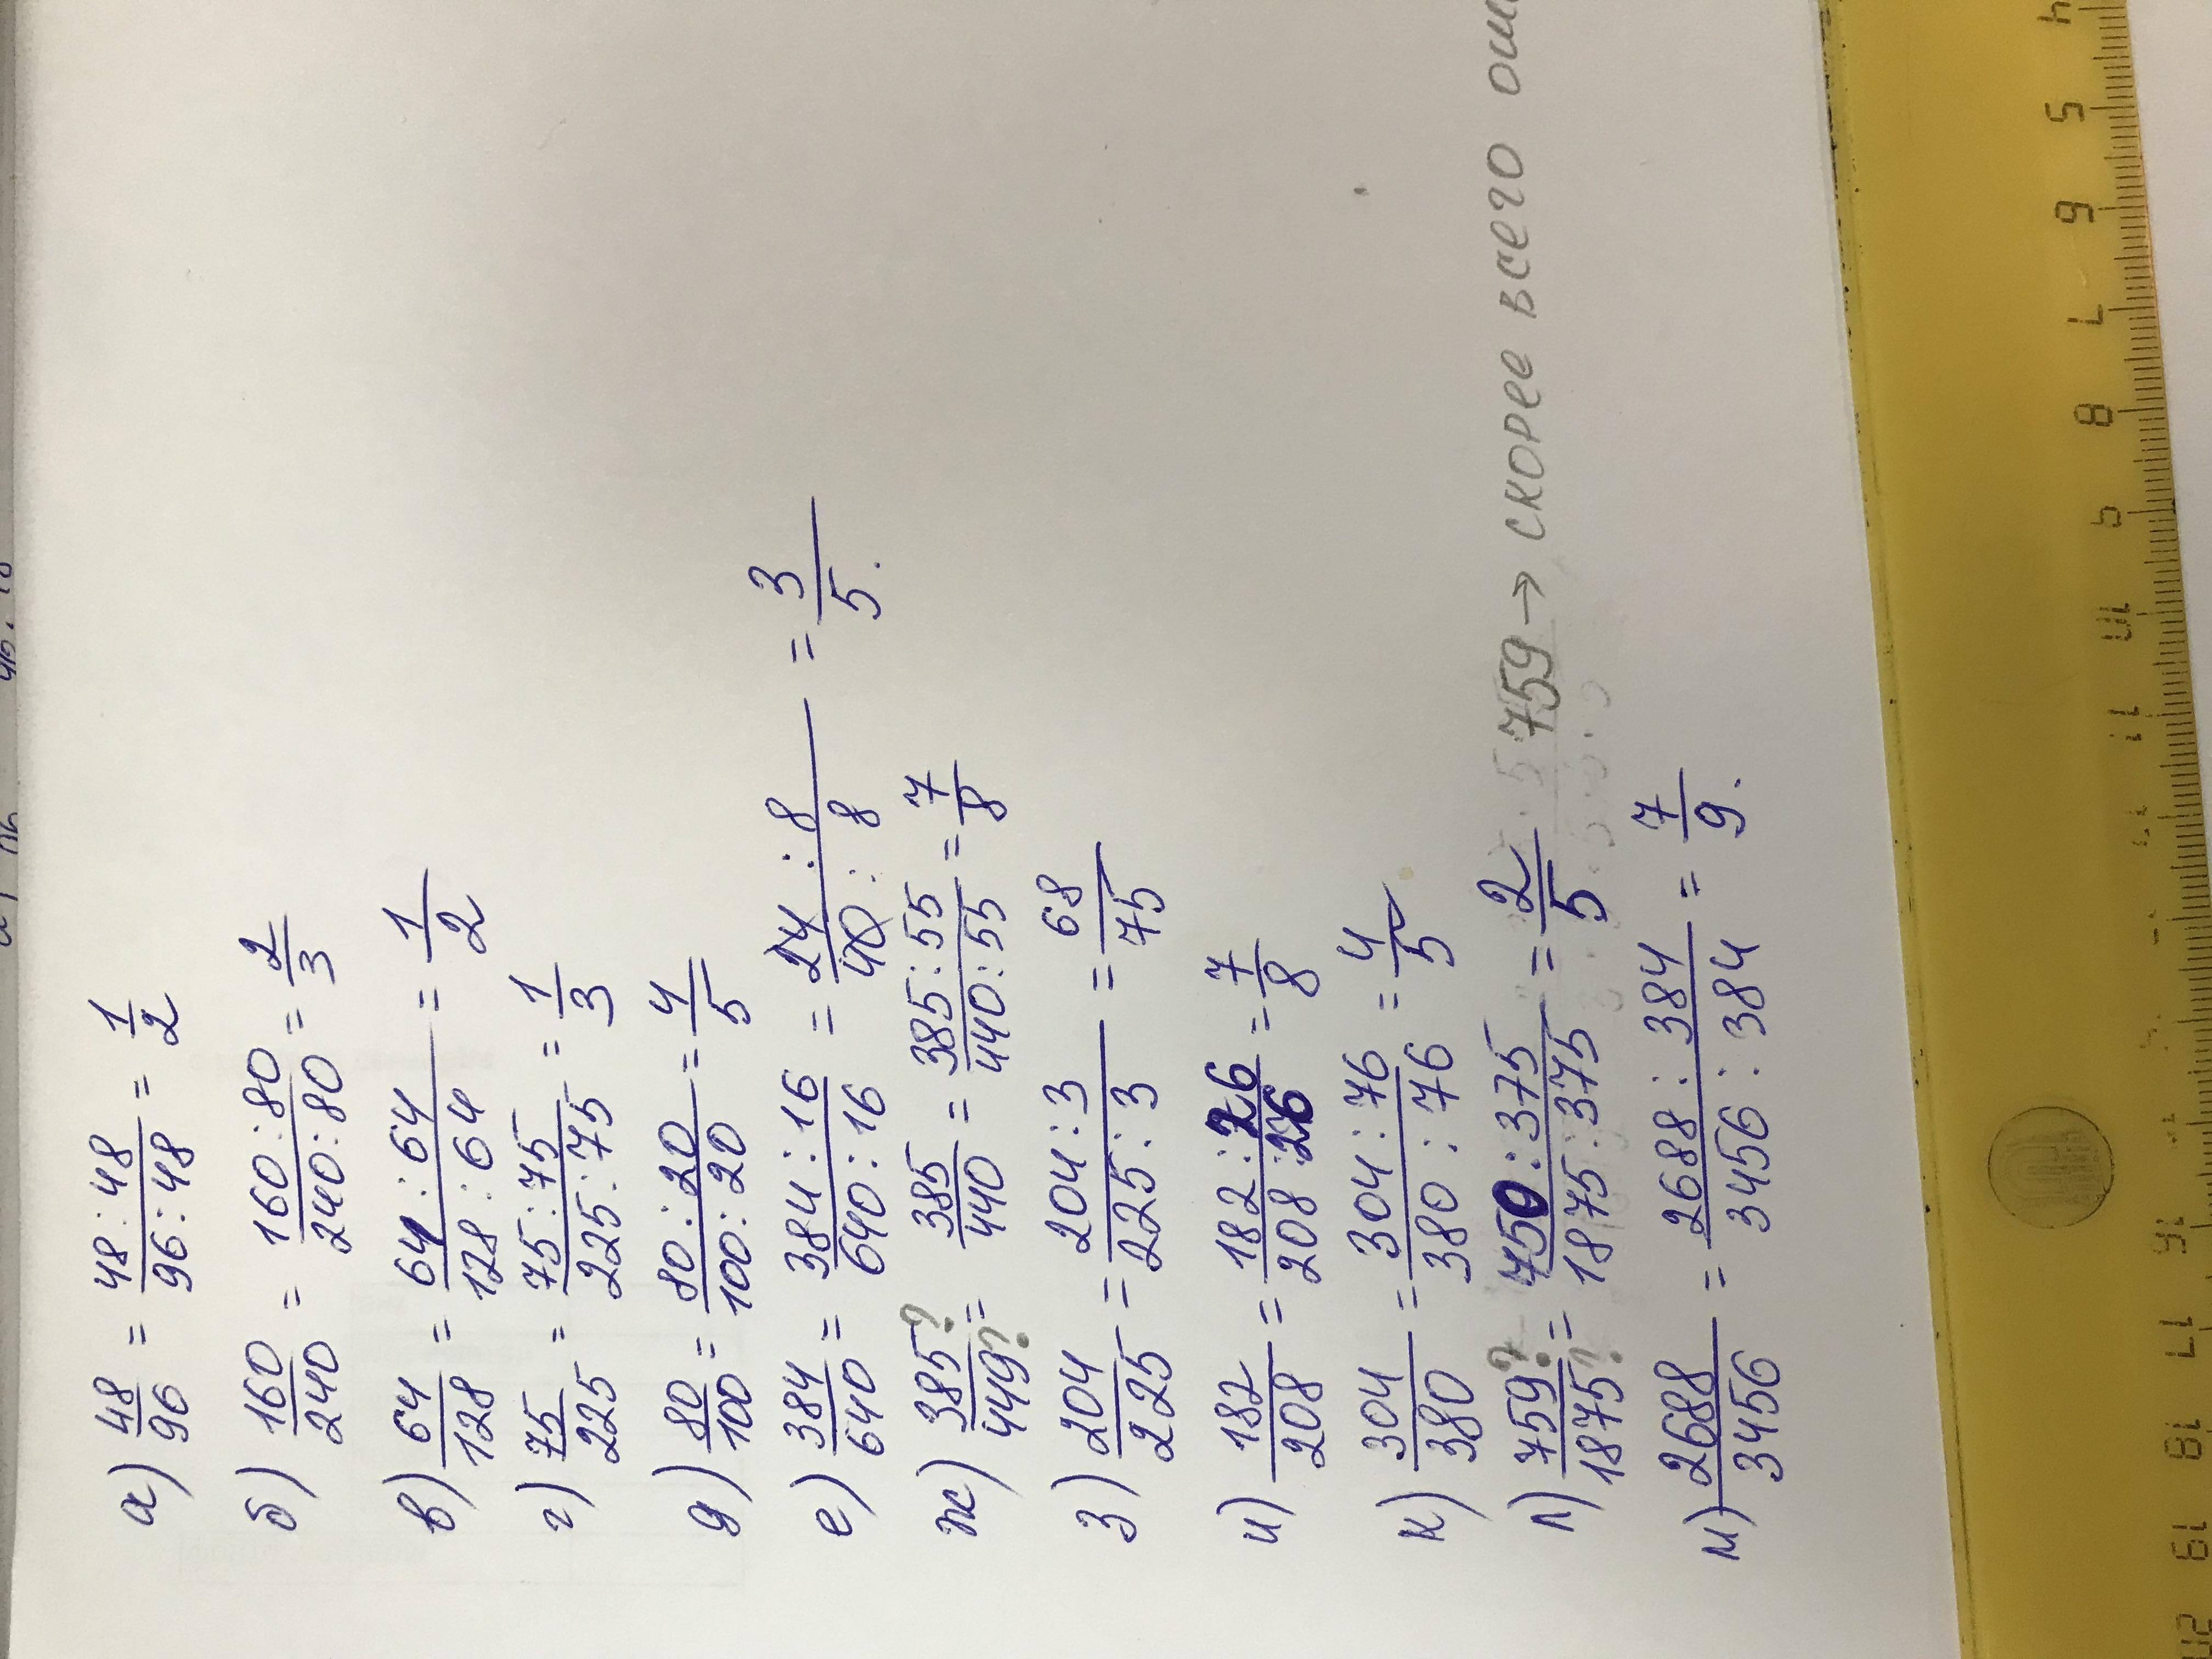 а) 48/96 = 48:48/96:48 = 1/2
б) 160/240 = 160:80/240:80 = 2/3
в) 64/128 = 64:64/128:64 = 1/2
г) 75/225 = 75:75/225:75 = 1/3
д) 80/100 = 80:20/100:20 = 4/5
е) 384/640 = 384:16/640:16 = 24:8/40:8 = 3/5.
ж) 385?/449? = 385/440 = 385:55/440:55 = 7/8
з) 204/225 = 204:3/225:3 = 68/75
и) 182/208 = 182:26/208:26 = 7/8
к) 304/380 = 304:76/380:76 = 4/5
л) 759?/1875? = 750:375/1875:375 = 2/5 759 → скорее всего
м) 2688/3456 = 2688:384/3456:384 = 7/9.
4 5 6 7 8 9 10 11 17 18 19 20